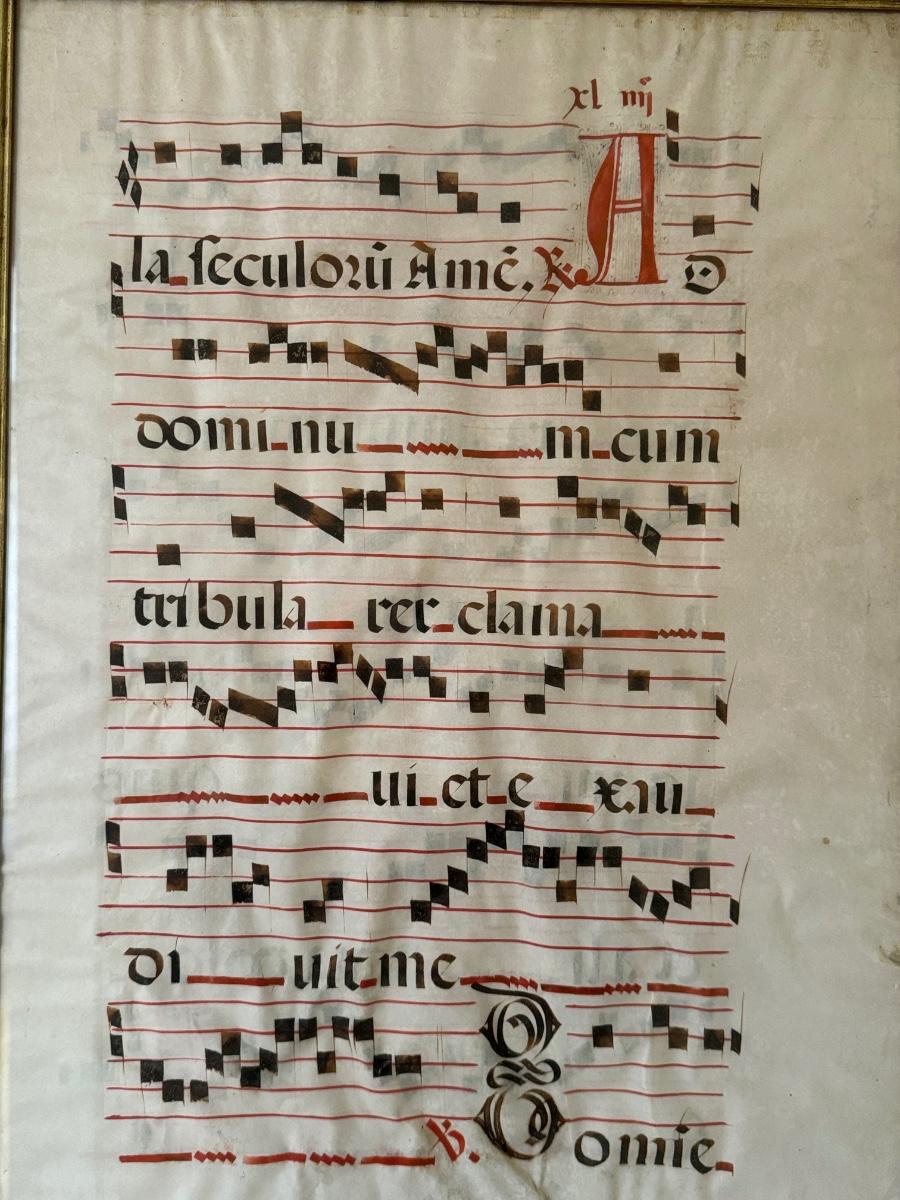 xl iiij
la seculorū Amē. ℟ A D
dominum cum
tribularer clama
ui et e xau
di uit me
℣. Domie